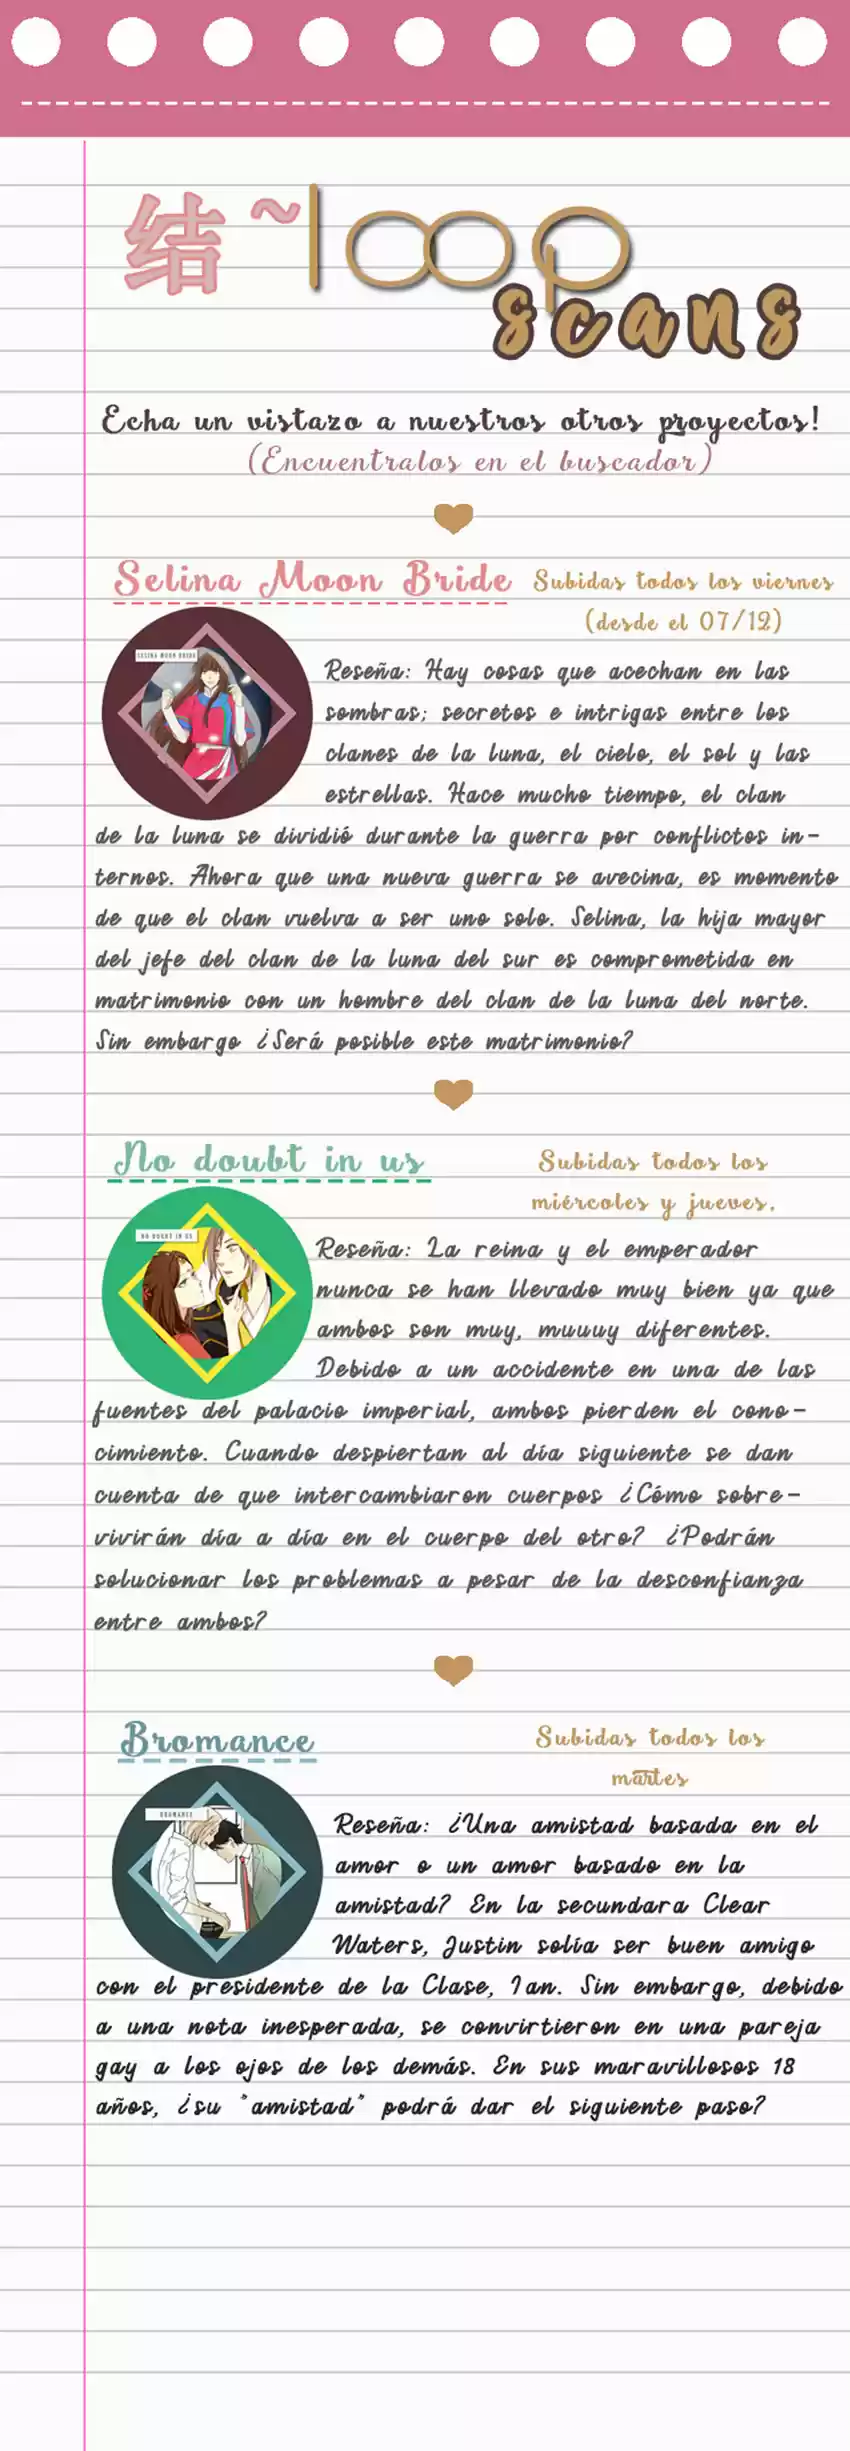 结~loop
scans
Echa un vistazo a nuestros otros proyectos!
(Encuentralos en el buscador)
Selina Moon Bride
Subidas todos los viernes
(desde el 07/12)
SELINA MOON BRIDE
Reseña: Hay cosas que acechan en las
sombras; secretos e intrigas entre los
clanes de la luna, el cielo, el sol y las
estrellas. Hace mucho tiempo, el clan
de la luna se dividió durante la guerra por conflictos in-
ternos. Ahora que una nueva guerra se avecina, es momento
de que el clan vuelva a ser uno solo. Selina, la hija mayor
del jefe del clan de la luna del sur es comprometida en
matrimonio con un hombre del clan de la luna del norte.
Sin embargo ¿Será posible este matrimonio?
No doubt in us
Subidas todos los
miércoles y jueves.
NO DOUBT IN US
Reseña: La reina y el emperador
nunca se han llevado muy bien ya que
ambos son muy, muuuy diferentes.
Debido a un accidente en una de las
fuentes del palacio imperial, ambos pierden el cono-
cimiento. Cuando despiertan al día siguiente se dan
cuenta de que intercambiaron cuerpos ¿Cómo sobre-
vivirán día a día en el cuerpo del otro? ¿Podrán
solucionar los problemas a pesar de la desconfianza
entre ambos?
Bromance
Subidas todos los
martes
BROMANCE
Reseña: ¿Una amistad basada en el
amor o un amor basado en la
amistad? En la secundara Clear
Waters, Justin solía ser buen amigo
con el presidente de la Clase, Ian. Sin embargo, debido
a una nota inesperada, se convirtieron en una pareja
gay a los ojos de los demás. En sus maravillosos 18
años, ¿su "amistad" podrá dar el siguiente paso?